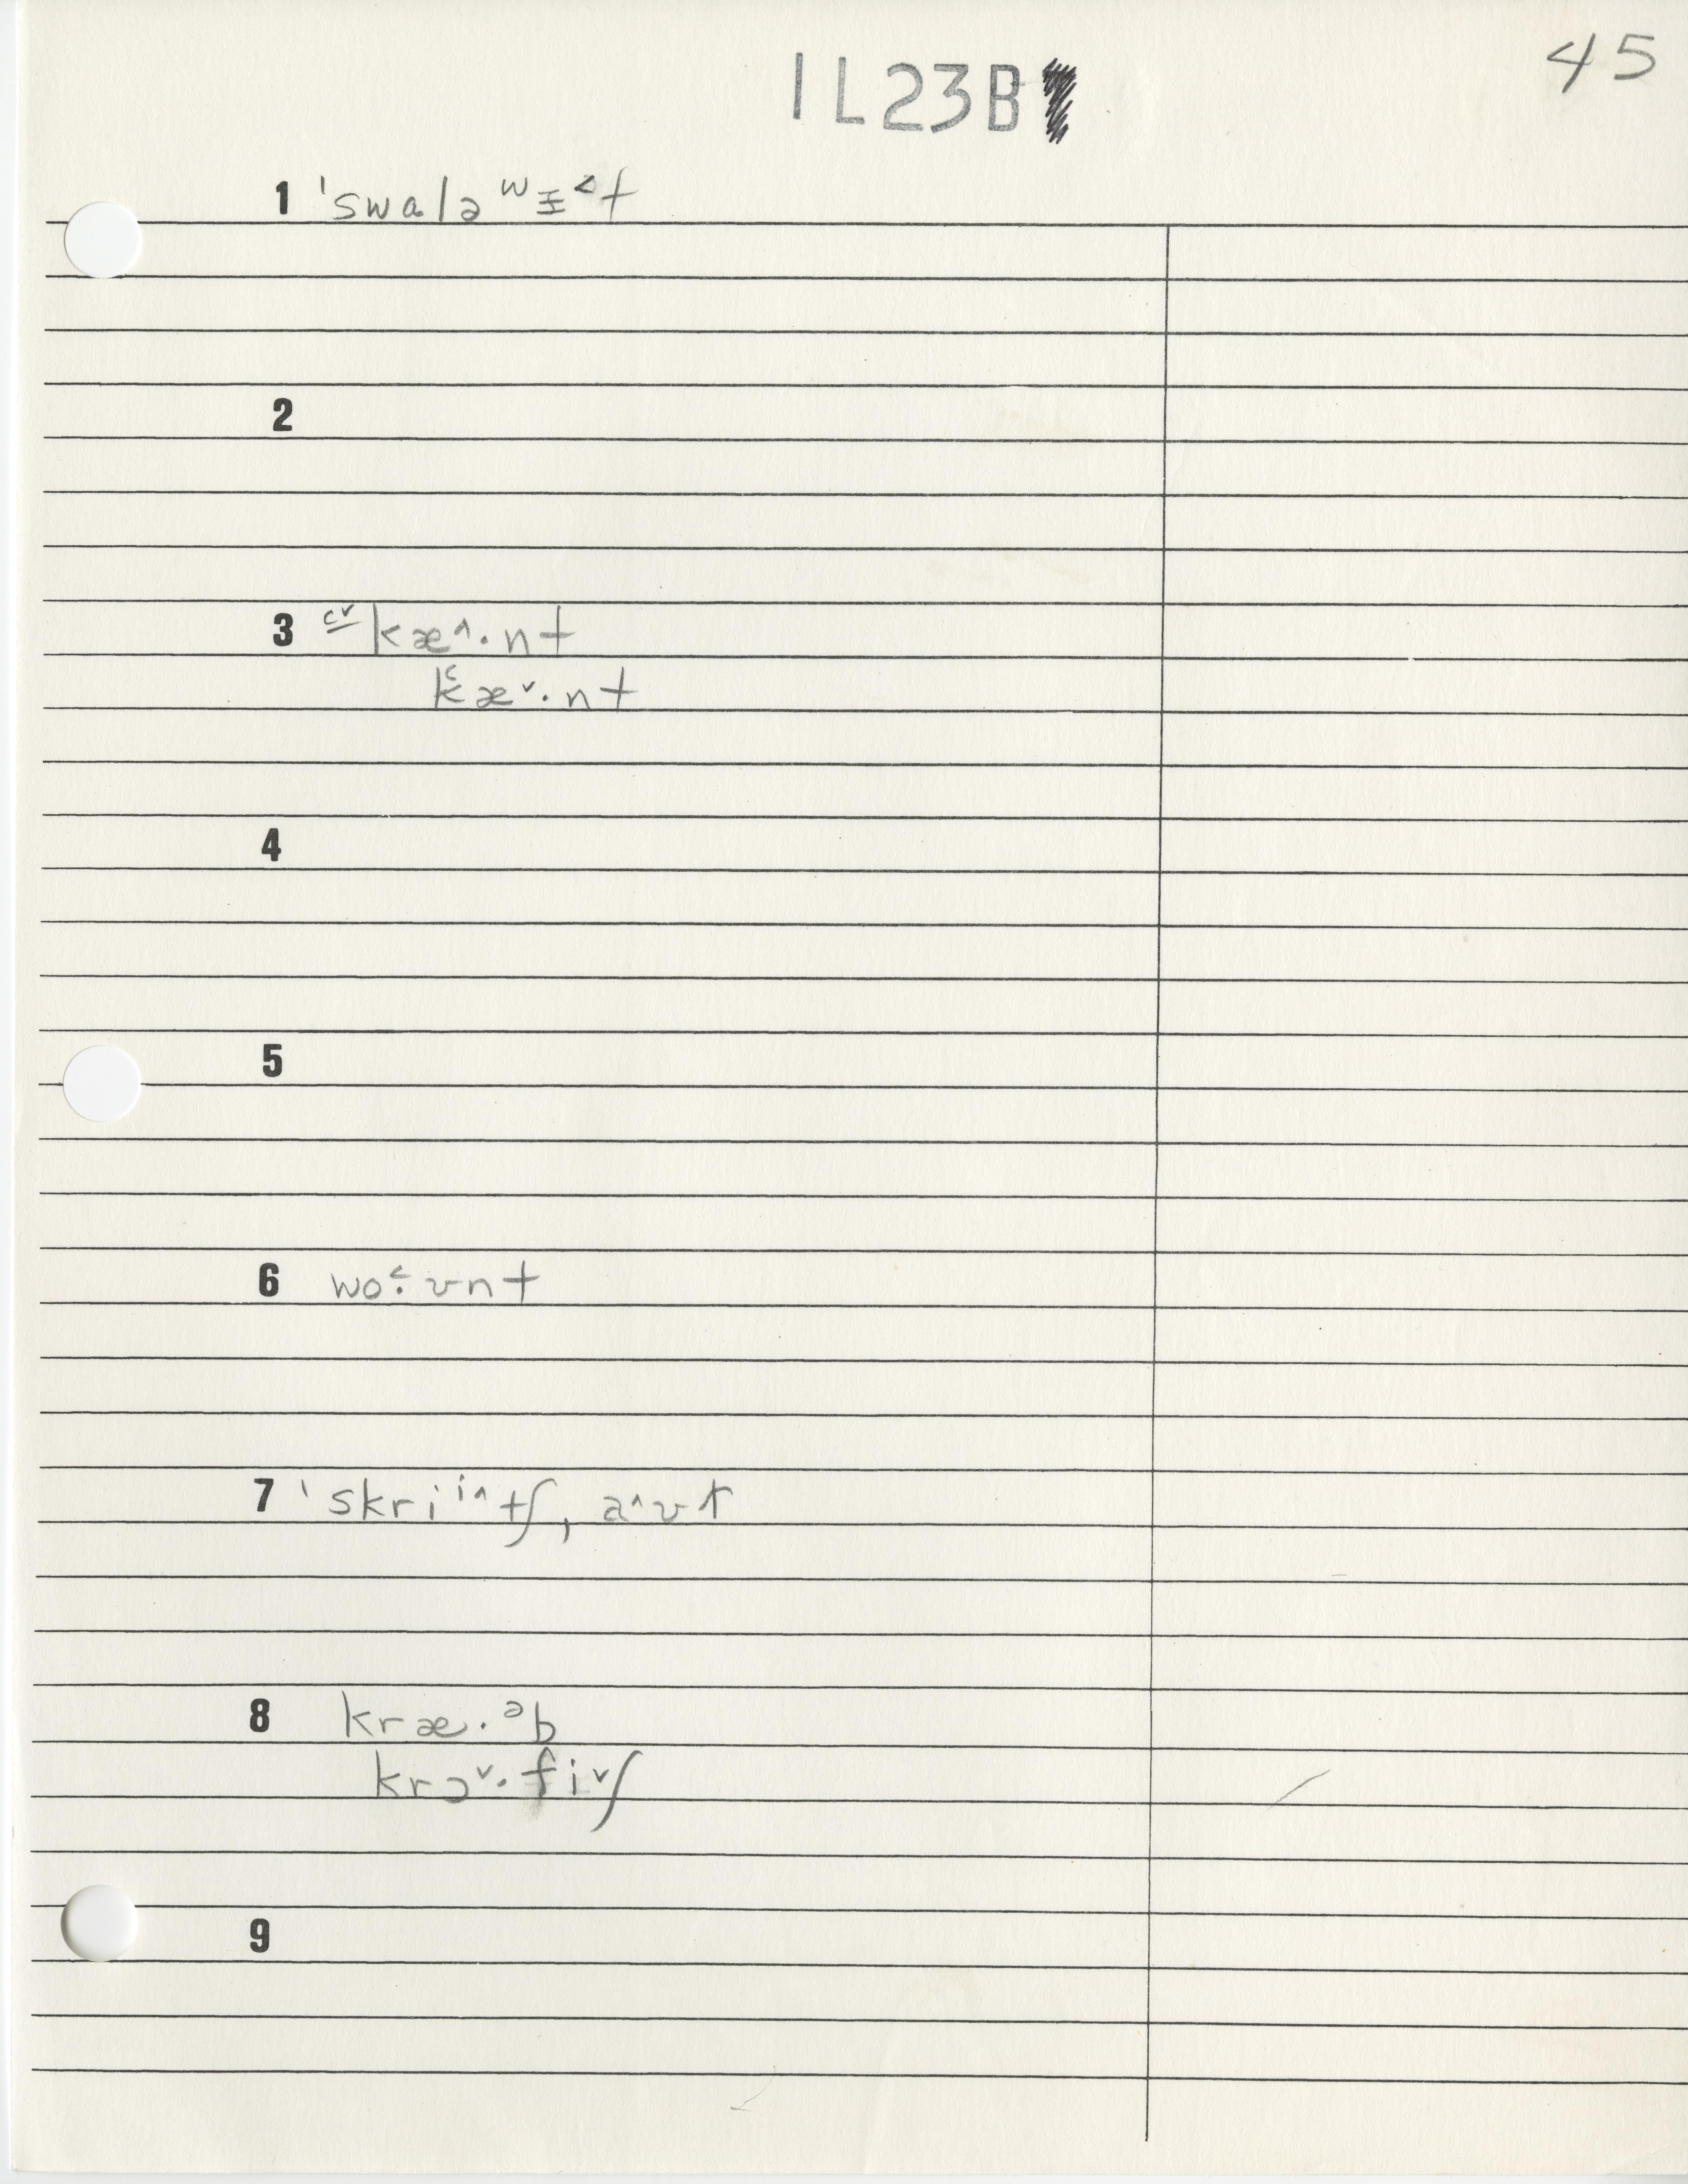 45
1L23B
1 ˈswalə ʷɪ̵˂t
2
3 cv kæ^·nt
k͑æˇ·nt
4
5
6 wo˂·ʊnt
7 ˈskri ⁱ^tʃ, a^ʊt
8 kræ·ᵊb
krɔˇ·fiˇʃ
9